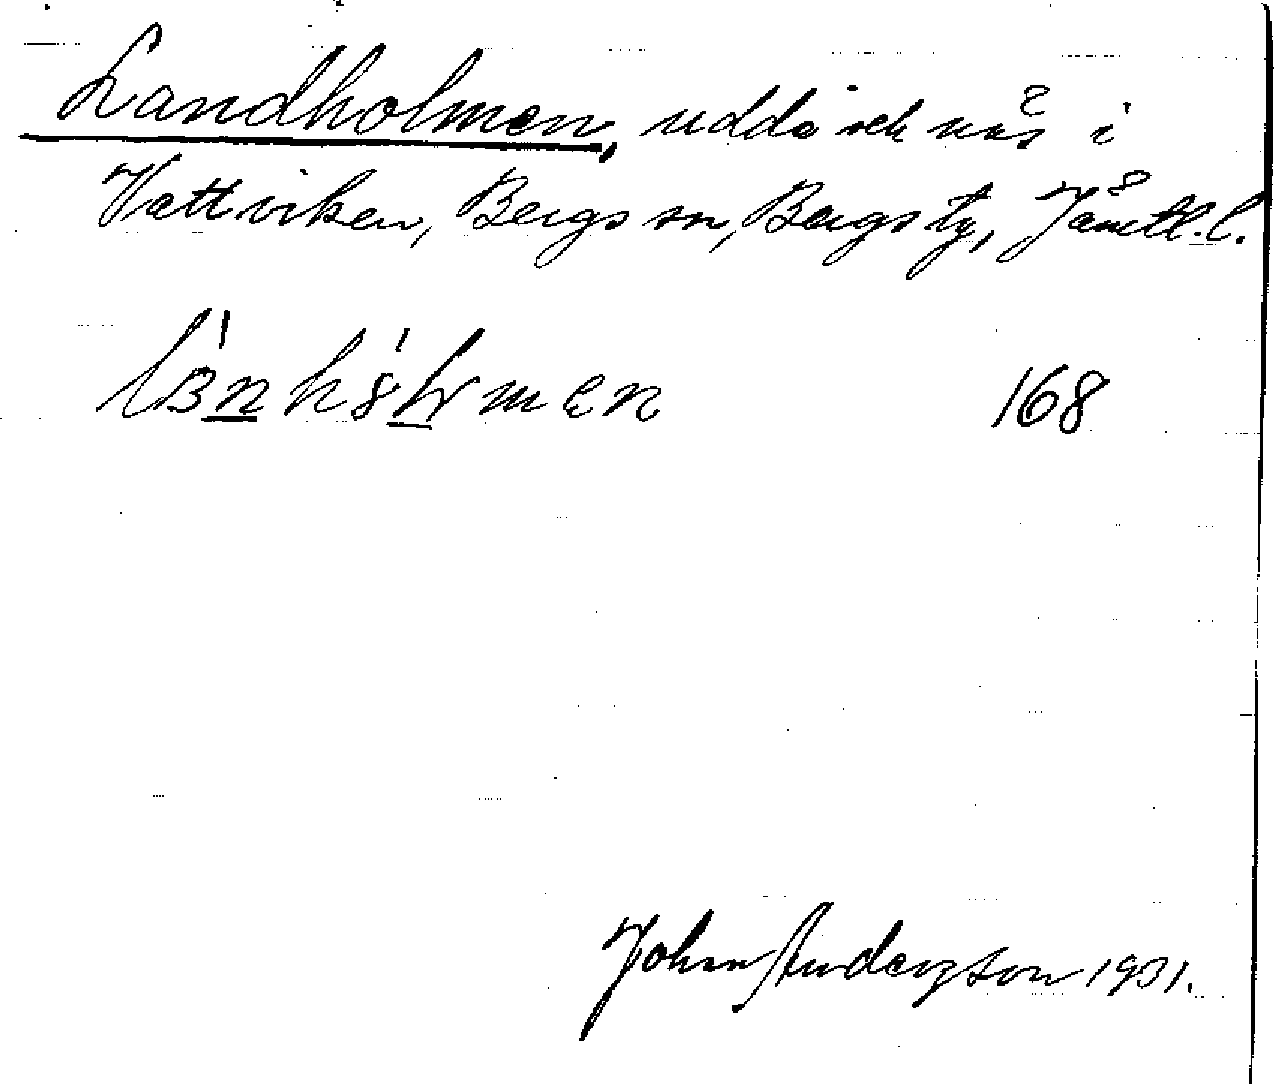 Landholmen, udde och näs i
Vattviken, Bergs sn, Bergs tg, Jämtl. l.
168
Johan Anderzson 1931.